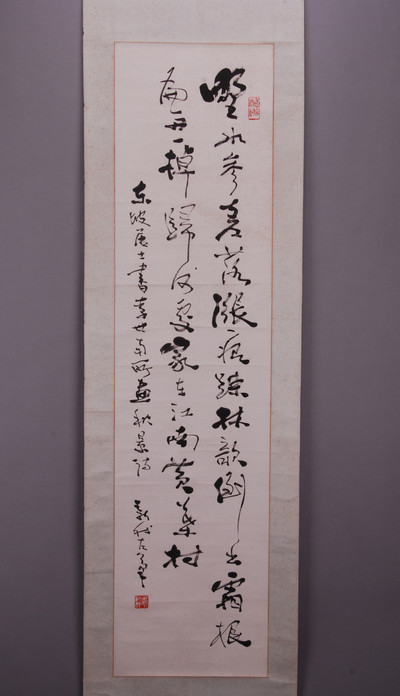 野水參差落漲痕疎林欹倒出霜根
扁舟一棹歸何處家在江南黄葉村
東坡居士書李世南所畫秋景詩